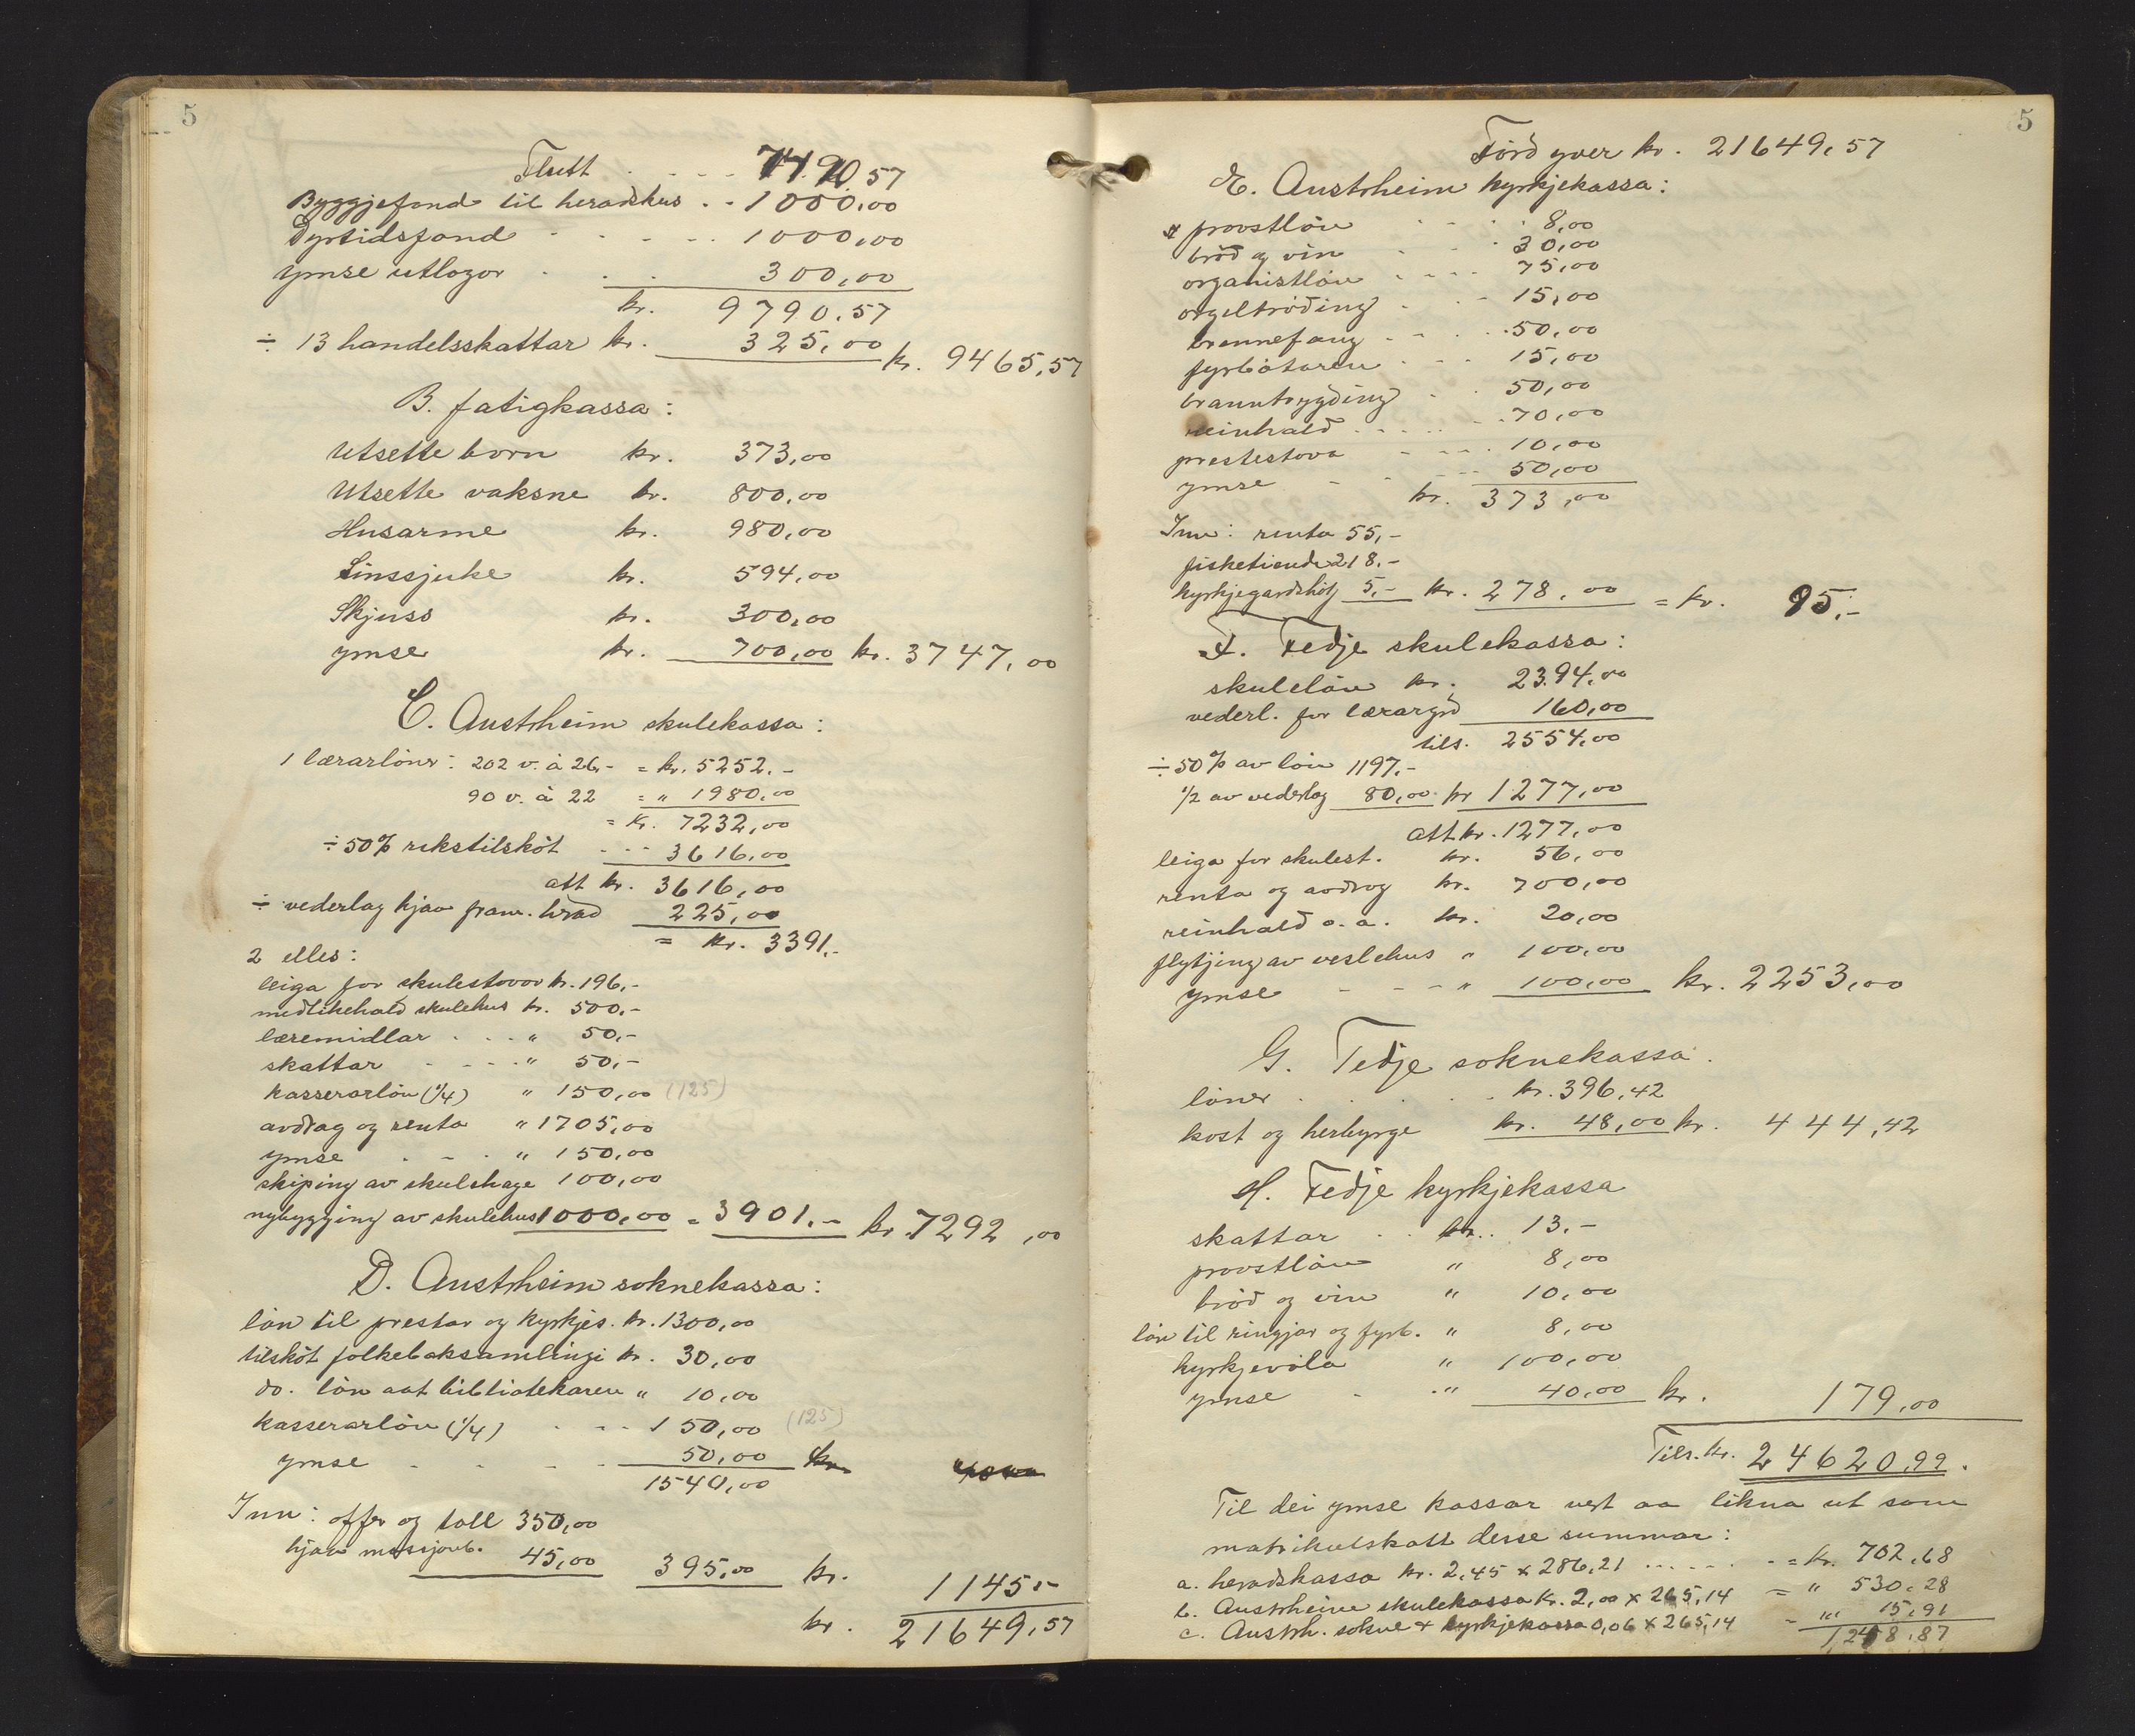 5
Flutt . . . . 7490,57
Byggjefond til heradshus . . 1000,00
Dyrtidsfond . . . . 1000,00
ymse utlogor . . . 300,00
kr. 9790,57
÷ 13 handelsskattar kr. 325,00 kr. 9465,57
B. fatigkassa:
Utsette born kr. 373,00
Utsette vaksne kr. 800,00
Husarme kr. 980,00
Sinssjuke kr. 594,00
Skjuss kr. 300,00
ymse kr. 700,00 kr. 3747,00
C. Austrheim skulekassa:
1 lærarlöner: 202 v. à 26,- = kr. 5252.-
90 v. à 22 = " 1980,00
= kr. 7232,00
÷ 50% rikstilskót - - - 3616,00
att kr. 3616,00
÷ vederlag hjao fram. hrad 225,00
= kr. 3391.-
2 elles:
leiga for skulestovor kr. 196,-
medlikehald skulehus kr. 500,-
læremidlar . . . " 50,-
skattar . . . . " 50,-
kasserarlön (1/4) " 150,00 (125)
avdrag og renta " 1705,00
ymse . - . " 150,00
skiping av skulehage 100,00
nybygging av skulehus 1000,00 = 3901.- kr 7292,00
D. Austrheim soknekassa:
lön til prestar og kyrkjes. kr. 1300,00
tilskót folkeboksamlingi kr. 30,00
do. lön aat bibliotekaren " 10,00
kasserarlön (1/4) . - - 150,00 (125)
ymse - - - - 50,00 kr.
1540,00
Inn: offer og toll 350,00
hjao missjonb. 45,00 395,00 kr. 1145,-
kr. 21649,57
5
Förd yver kr. 21649,57
E. Austrheim kyrkjekassa:
provstlön . . . . 8,00
bröd og vin . . . 30,00
organistlön . . . . 75,00
orgeltröding . . . 15,00
brennefang . . . 50,00
fyrbötaren . . . 15,00
branntrygding . . 50,00
reinhald . . . . . 70,00
prestestova . . . . 10,00
ymse . . . . 50,00
kr. 373,00
Inn: renta 55,-
fisketiende 218.-
kyrkjegardshöy 5,- kr. 278,00 = kr. 95,-
F. Fedje skulekassa:
skulelön kr. 2394,00
vederl. for lærarjord 160,00
tils. 2554,00
÷ 50% av lön 1197,-
1/2 av vederlag 80,00 kr 1277,00
att kr. 1277,00
leiga for skulest. kr. 56,00
renta og avdrag kr. 700,00
reinhald o.a. kr. 20,00
flytjing av veslehus " 100,00
ymse - - - " 100,00 kr. 2253,00
G. Fedje soknekassa.
löner . . . . . kr. 396,42
kost og herbyrge kr. 48,00 kr. 444,42
H. Fedje kyrkjekassa
skattar . . kr. 13.-
provstlön " 8,00
bröd og vin " 10,00
lön til ringjar og fyrb. " 8,00
kyrkjevöla " 100,00
ymse - . " 40,00 kr. 179,00
Tils. kr. 24620,99.
Til dei ymse kassar vert aa likna ut som
matrikulskatt desse summar:
a. heradskassa kr. 2,45 x 286,21 . . . . . = kr. 702,68
b. Austrheim skulekassa kr. 2,00 x 265,14 = " 530,28
c. Austrh. sokne + kyrkjekassa 0,06 x 265,14 - " 15,91
1,248,87